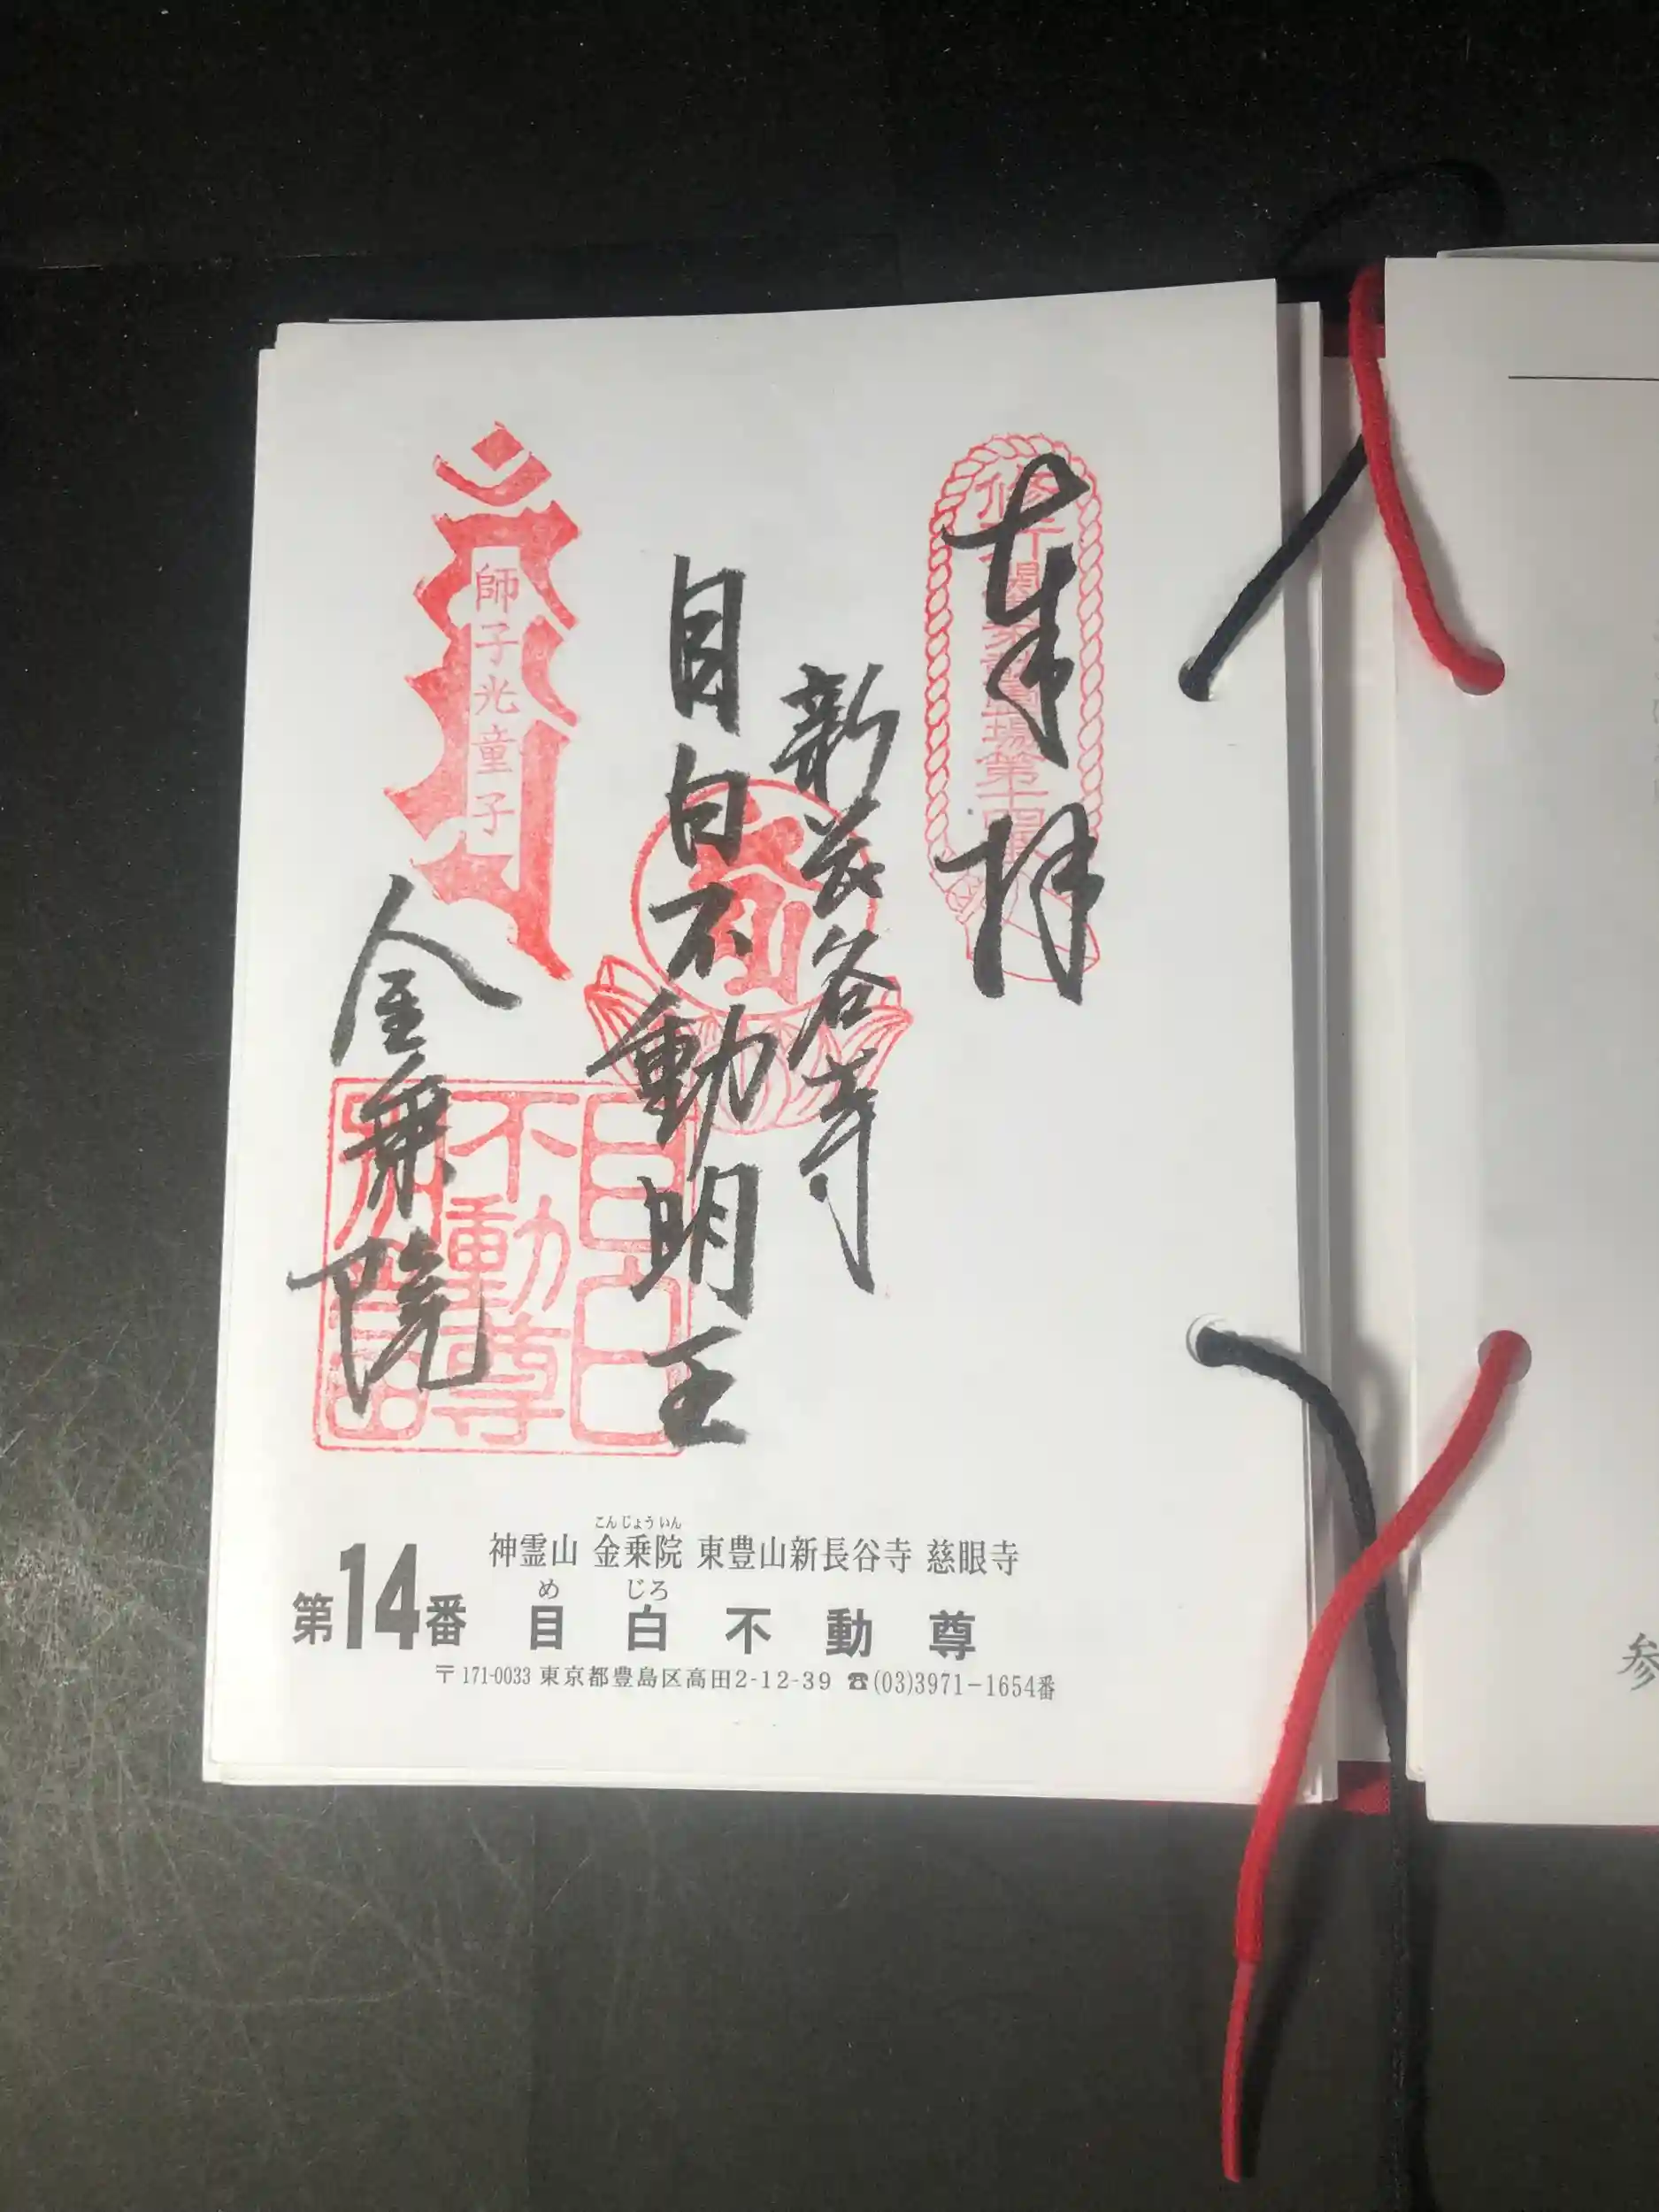 奉拝
新長谷寺
目白不動明王
師子光童子
金乗院
目白
不動尊
こんじょういん
神霊山 金乗院 東豊山新長谷寺 慈眼寺
め じろ
第14番 目白不動尊
〒171-0033 東京都豊島区高田2-12-39 ☎(03)3971-1654番
参